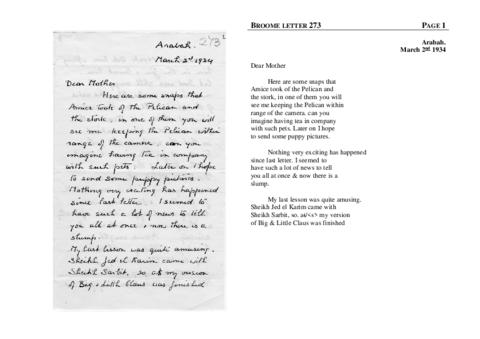 Arabah. 273
March 2nd 1934
Dear Mother
Here are some snaps that
Amice took of the Pelican and
the stork, in one of them you will
see me keeping the Pelican within
range of the camera, can you
imagine having tea in company
with such pets. Later on I hope
to send some puppy pictures.
Nothing very exciting has happened
since last letter. I seemed to
have such a lot of news to tell
you all at once & now there is a
slump.
My last lesson was quite amusing.
Sheikh Jed el Karim came with
Sheikh Sarbit, so, at my version
of Big & Little Claus was finished
BROOME LETTER 273 PAGE 1
Arabah.
March 2nd 1934
Dear Mother
Here are some snaps that
Amice took of the Pelican and
the stork, in one of them you will
see me keeping the Pelican within
range of the camera. can you
imagine having tea in company
with such pets. Later on I hope
to send some puppy pictures.
Nothing very exciting has happened
since last letter. I seemed to
have such a lot of news to tell
you all at once & now there is a
slump.
My last lesson was quite amusing.
Sheikh Jed el Karim came with
Sheikh Sarbit, so, at/<s> my version
of Big & Little Claus was finished